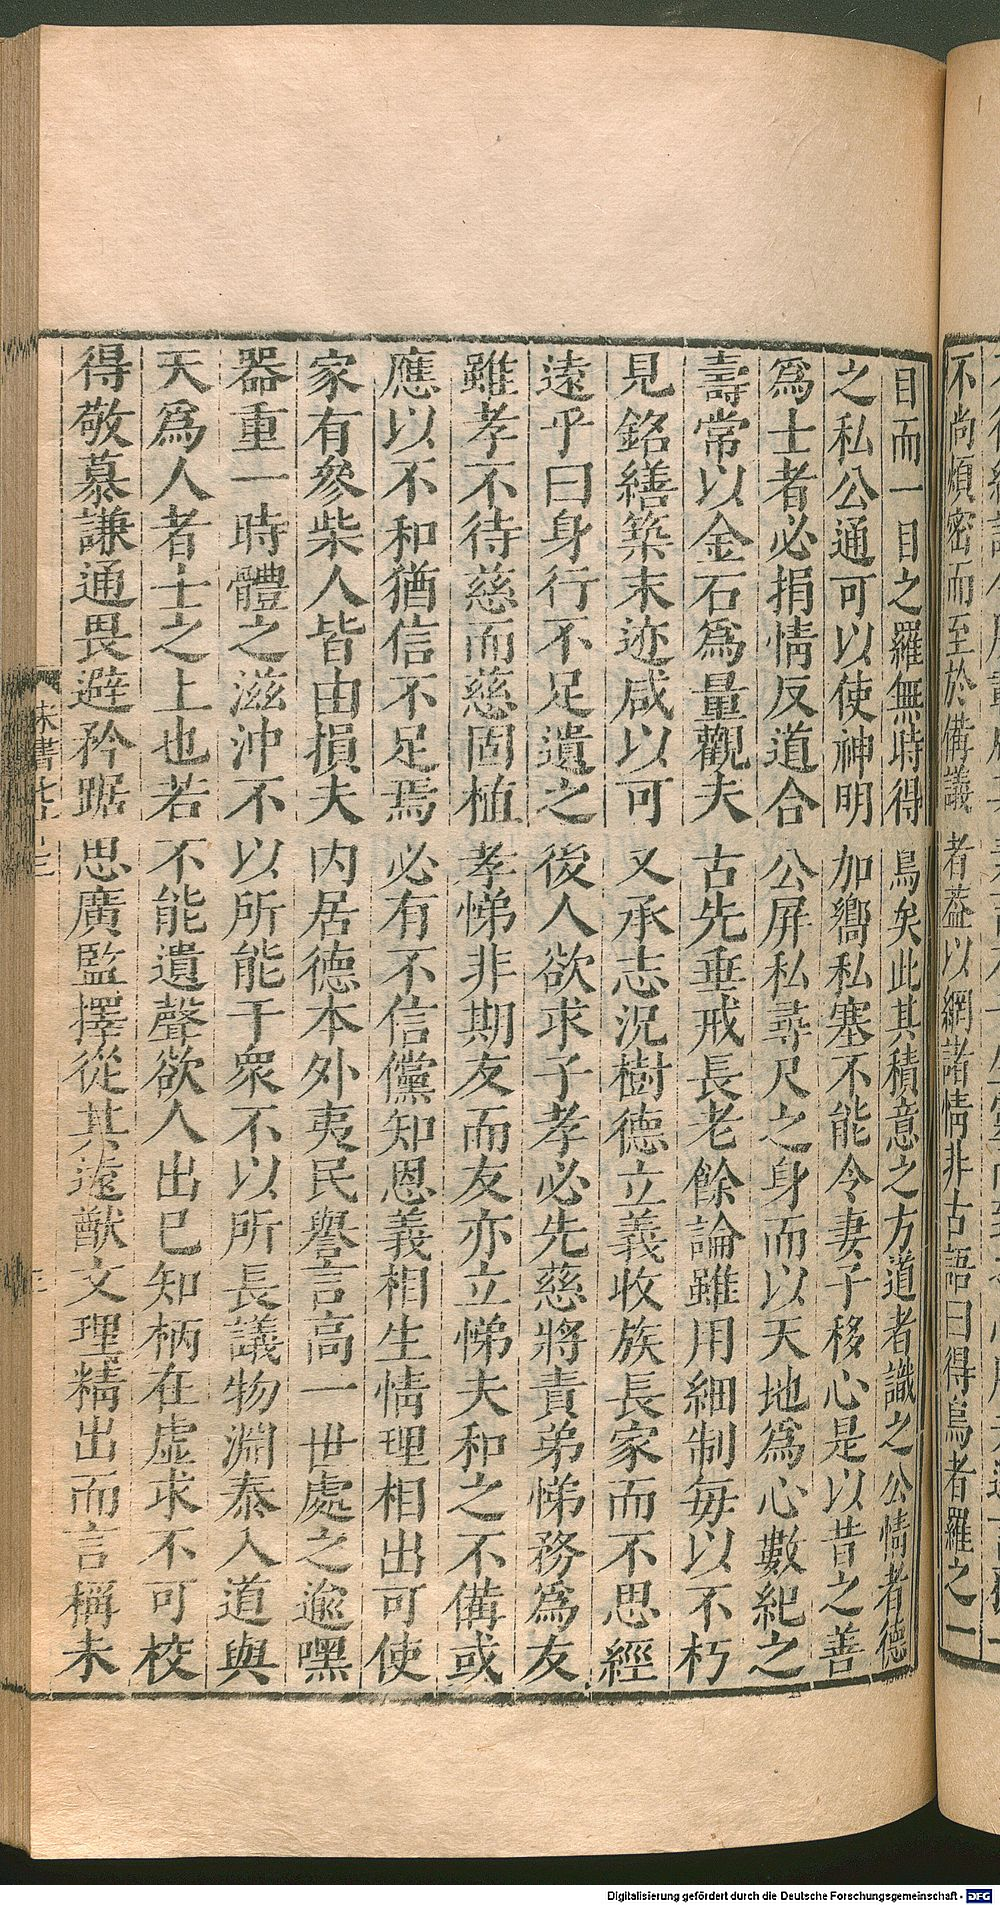 不尚煩密而至於備議者蓋以網諸情非古語曰得鳥者羅之一
目而一目之羅無時得鳥矣此其積意之方道者識之公情者德
之私公通可以使神明加嚮私塞不能令妻子移心是以昔之善
爲士者必捐情反道合公屏私尋尺之身而以天地爲心數紀之
壽常以金石爲量觀夫古先垂戒長老餘論雖用細制每以不朽
見銘繕築末迹咸以可久承志況樹德立義收族長家而不思經
遠乎曰身行不足遺之後人欲求子孝必先慈將責弟悌務爲友
雖孝不待慈而慈固植孝悌非期友而友亦立悌夫和之不備或
應以不和猶信不足焉必有不信儻知恩義相生情理相出可使
家有參柴人皆由損夫内居德本外夷民譽言高一世處之逾嘿
器重一時體之滋沖不以所能干衆不以所長議物淵泰入道與
天爲人者士之上也若不能遺聲欲人出己知柄在虛求不可校
得敬慕謙通畏避矜踞思廣監擇從其遠猷文理精出而言稱未
Digitalisierung gefördert durch die Deutsche Forschungsgemeinschaft - DFG